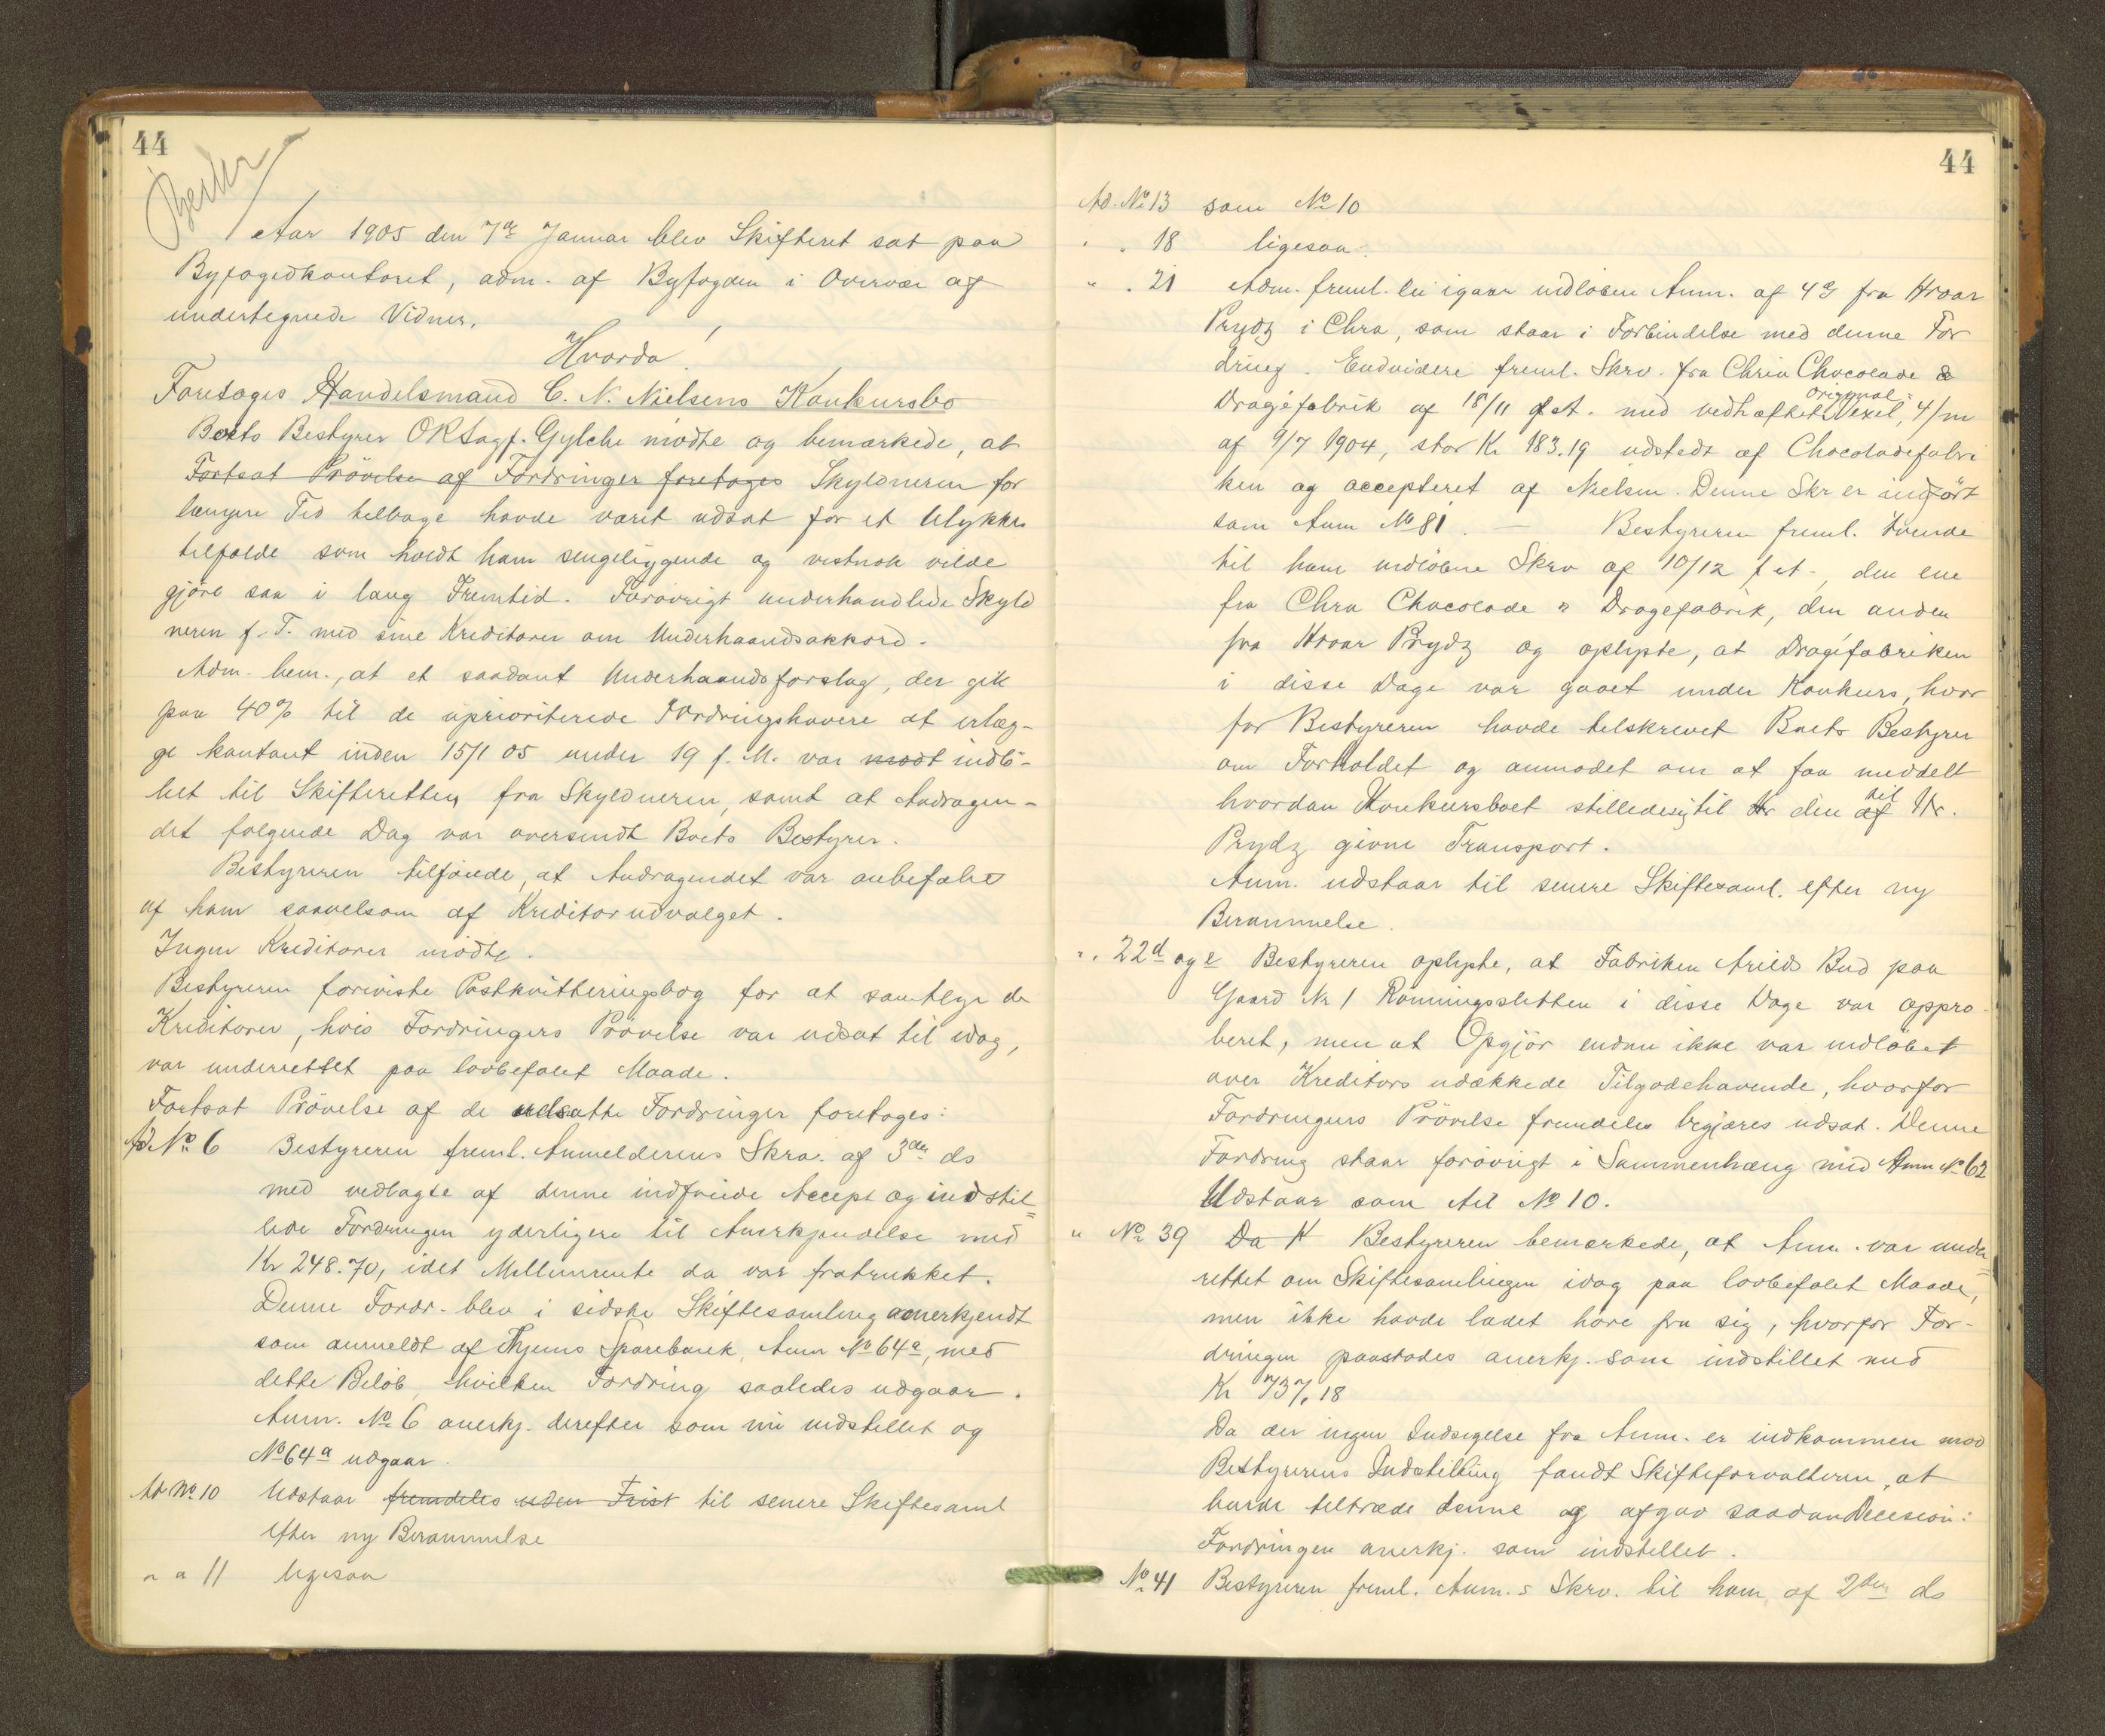 44
Aar 1905 den 7de Januar blev Skifteret sat paa
Byfogedkontoret, adm. af Byfogden i Overvær af
undertegnede Vidner,
Hvorda!
Foretoges Handelsmand C. N. Nielsens Konkursbo
Boets Bestyrer ORsagf. Gylche mødte og bemærkede, at
Fortsat Prövelse af Fordringer foretoges Skyldneren for
længere Tid tilbage havde været udsat for et Ulykkes
tilfælde som holdt ham sengeliggende og vistnok vilde
gjöre saa i lang Fremtid. Forøvrigt underhandlede Skyld
neren f. T. med sine Kreditorer om Underhaandsakkord.
Adm. bem., at et saadant Underhaandsforslag, der gik
paa 40% til de uprioriterede Fordringshavere at erlæg-
ge kontant inden 15/1 05 under 19 f. M. var modt indlö-
bet til Skifteretten fra Skyldneren, samt at Andragen-
det følgende Dag var oversendt Boets Bestyrer.
Bestyreren tilföiede, at Andragendet var anbefalet
af ham saavelsom af Kreditorudvalget.
Ingen Kreditorer mødte.
Bestyreren foreviste Postkvitteringsbog for at samtlige de
Kreditorer, hvis Fordringers Prövelse var udsat til idag,
var underrettet paa lovbefalet Maade.
Fortsat Prövelse af de udsatte Fordringer foretoges:
Ad No 6 Bestyreren freml. Anmelderens Skrv. af 3die ds
med vedlagte af denne indfriede Accept og indstil
lede Fordringen yderligere til Anerkjendelse med
Kr 248.70, idet Mellemrente da var fratrukket.
Denne Fordr. blev i sidste Skiftesamling anerkjendt
som anmeldt af Sparebank, Anm No 64a, med
dette Belöb, hvilken Fordring saaledes udgaar.
Anm. No 6 anerkj. derefter som nu indstillet og
No 64a udgaar.
Ad No 10 Udstaar fremdeles uden Frist til senere Skiftesaml
efter ny Berammelse
" " 11 ligesaa
44
Ad. No 13 som No 10
" " 18 ligesaa.
" " 21 Adm. freml. en igaar indløben Anm. af 4 ds fra Hroar
Prydz i Chra, som staar i Forbindelse med denne For
dring. Endvidere freml. Skrv. fra Chria Chocolade &
Dragéfabrik af 18/11 f. A. med vedheftet original Vexel, 4/m
af 9/7 1904, stor Kr 183.19 udstedt af Chocoladefabri
ken og accepteret af Nielsen. Denne Skr er indfört
som Anm No 81. — Bestyreren freml. tvende
til ham indløbne Skrv af 10/12 f. A., den ene
fra Chra Chocolade & Dragefabrik, den anden
fra Hroar Prydz og oplyste, at Dragéfabriken
i disse Dage var gaaet under Konkurs, hvor
for Bestyreren havde tilskrevet Boets Bestyrer
om Forholdet og anmodet om at faa meddelt
hvordan Konkursboet stillede sig til Hr den af til Hr.
Prydz givne Transport.
Anm. udstaar til senere Skiftesaml. efter ny
Berammelse.
" " 22d og e Bestyreren oplyste, at Fabriken Arilds Bud paa
Gaard Nr 1 Rönningssletten i disse Dage var appro-
beret, men at Opgjör endnu ikke var indløbet
over Kreditors udækkede Tilgodehavende, hvorfor
Fordringens Prövelse fremdeles begjæres udsat. Denne
Fordring staar forövrigt i Sammenhæng med Anm No 62
Udstaar som Ad No 10.
" No 39 Da K Bestyreren bemærkede, at Anm. var under
rettet om Skiftesamlingen idag paa lovbefalet Maade,
men ikke havde ladet höre fra sig, hvorfor For-
dringen paastodes anerkj. som indstillet med
Kr 737,18
Da der ingen Indsigelse fra Anm. er indkommen mod
Bestyrerens Indstilling fandt Skifteforvalteren, at
burde tiltræde denne og afgav saadan Decision:
Fordringen anerkj. som indstillet.
No 41 Bestyreren freml. Anm.s Skrv. til ham af 2den ds